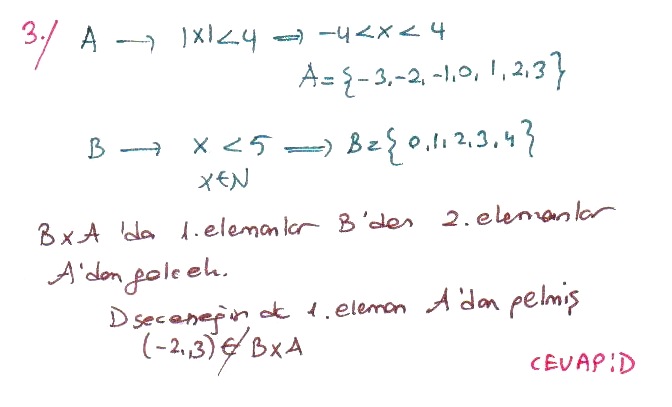 3·/ A → |x|<4 ⇒ -4<x<4
A={-3,-2,-1,0,1,2,3}
B → x<5 ⟹ B={0,1,2,3,4}
x∈N
BxA 'da 1.elemanlar B'den 2.elemanlar
A'dan gelecek.
D seceneğinde 1.eleman A'dan gelmiş
(-2,3)∉BxA
CEVAP:D